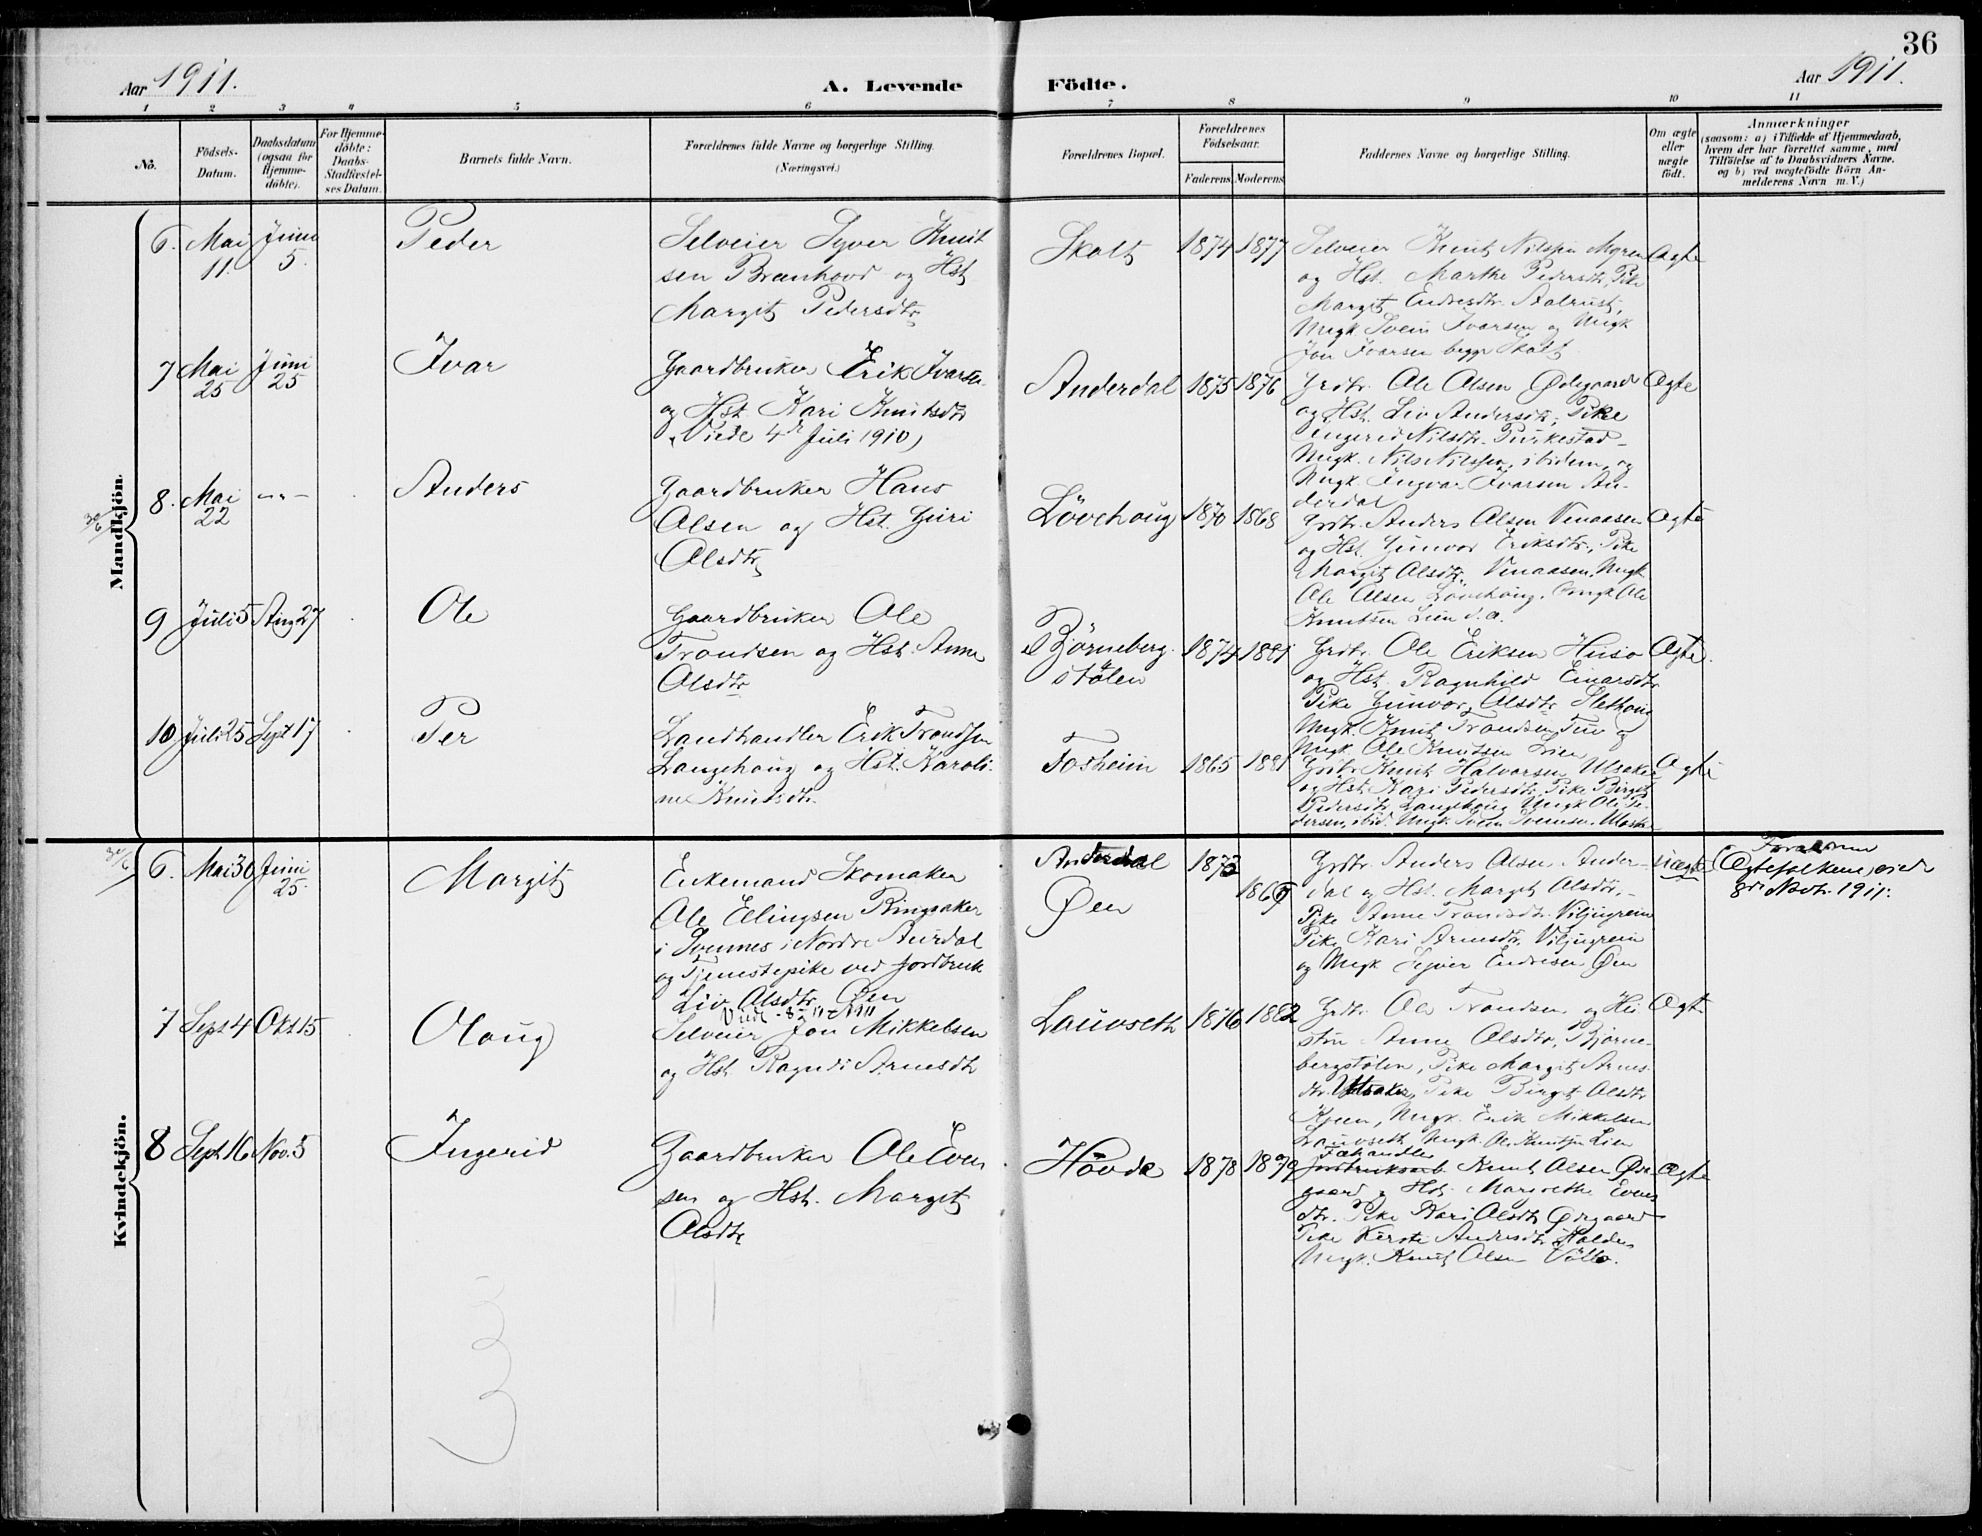 36
Aar 1911. A. Levende Födte. Aar 1911.
1 2 3 4 5 6 7 8 9 10 11
No.
Födsels-Datum.
Daabsdatum (ogsaa for Hjemme-döbte).
For Hjemme-döbte: Daabs-Stadfæstel-ses Datum.
Barnets fulde Navn.
Forældrenes fulde Navne og borgerlige Stilling. (Næringsvei.)
Forældrenes Bopæl.
Forældrenes Födselsaar.
Faderens Moderens
Faddernes Navne og borgerlige Stilling.
Om ægte eller uægte födt.
Anmærkninger
(saasom: a) i Tilfælde af Hjemmedaab,
hvem der har forrettet samme, med
Tilföielse af to Daabsvidners Navne,
og b) ved uægtefödte Börn An-
melderens Navn m. V.)
Mandkjön.
6. Mai 11. Juni 5.
Peder
Selveier Syver Knut
sen Brænhovd og Hst
Margit Pedersdtr
Skolt
1874 1877
Selveier Knut Nilssen Myren
og Hst. Marthe Pedersdtr, Pike
Margit Endresdtr.
Ungk Svein Ivarsen og Ungk
Jon Ivarsen begge Skolt
Ægte
7 Mai 25 Juni 25
Ivar
Gaardbruker Erik Ivarsen
og Hst. Kari Knutsdtr
(Viede 4de Juli 1910)
Anderdal
1875 1876
Grdbr. Ole Olsen Ødegaard
og Hst. Liv Andersdtr; Pike
Ingerid Nilsdtr.
Ungk. Nils Nilssen, ibidem, og
Ungk. Ingvar Ivarsen An-
derdal
Ægte
8. Mai 22 -"-
Anders
Gaardbruker Hans
Olsen og Hst. Guri
Olsdtr
Lövehoug
1870 1868
Grdbr. Anders Olsen Venaasen
og Hst. Gunvor Eriksdtr., Pike
Margit Olsdtr. Venaasen, Ungk
Ole Olsen Lövehoug. Ungk Ole
Knutsen Lien d. a.
Ægte
9 Juli 5 Aug 27
Ole
Gaardbruker Ole
Trondsen og Hst. Anne
Olsdtr
Björneberg-
stölen
1874 1881
Grdbr. Ole Eriksen
og Hst. Ragnhild Einarsdtr
Pike Gunvor Olsdtr
Ungk. Knut Trondsen og
Ungk. Ole Knutsen Lien
Ægte.
10 Juli 25 Sept 17
Per
Landhandler Erik Trondsen
Langehoug og Hst. Karoli-
ne Knutsdtr.
Fosheim
1865 1881
Grdbr Knut Halvorsen Ulsaker
og Hst Kari Pedersdtr, Pike Birgit
Pedersdtr Langehoug Ungk Ole Pe-
dersen, ibid. Ungk Svein
Ægte
Kvindekjön.
6. Mai 30 Juni 25.
Margit
Enkemand Skomaker
Ole Ellingsen Ringsaker
i Svennes i Nordre Aurdal
og Tjenestepike ved Jordbruk
Liv Olsdtr. Øen
Viede 8/11 1911
Anderdal
Øen
1873
1869
Grdbr. Anders Olsen Ander-
dal og Hst. Margit Olsdtr,
Pike Anne Trondsdtr Viljugrein
Pike Kari Arnesdtr, Viljugrein
og Ungk Syver Endresen Øen
Uægte
Forældrene
Ægtefolkene viede
8de Novbr. 1911.
7 Sept 4 Okt 15
Olaug
Selveier Jon Mikkelsen
og Hst. Ragndi Arnesdtr
Lauvseth
1876 1882
Grdbr. Ole Trondsen og Hu-
stru Anne Olsdtr, Björne-
bergstölen, Pike Margit Arnes-
dtr. Ulsaker, Pike Birgit Olsdtr
Ungk. Erik Mikkelsen
Lauvseth Ungk. Ole Knutsen Lien
Ægte
8 Sept 16 Nov. 5
Ingerid
Gaardbruker Ole Even
sen og Hst. Margit
Olsdtr
Hövda
1878 1879
Fæhandler
Knut Olsen Øde-
gaard og Hst. Margrethe Evens
dtr. Pike Kari Olsdtr Ødegaard
Pike Kirsti Andersdtr
Ungk. Knut Olsen
Ægte